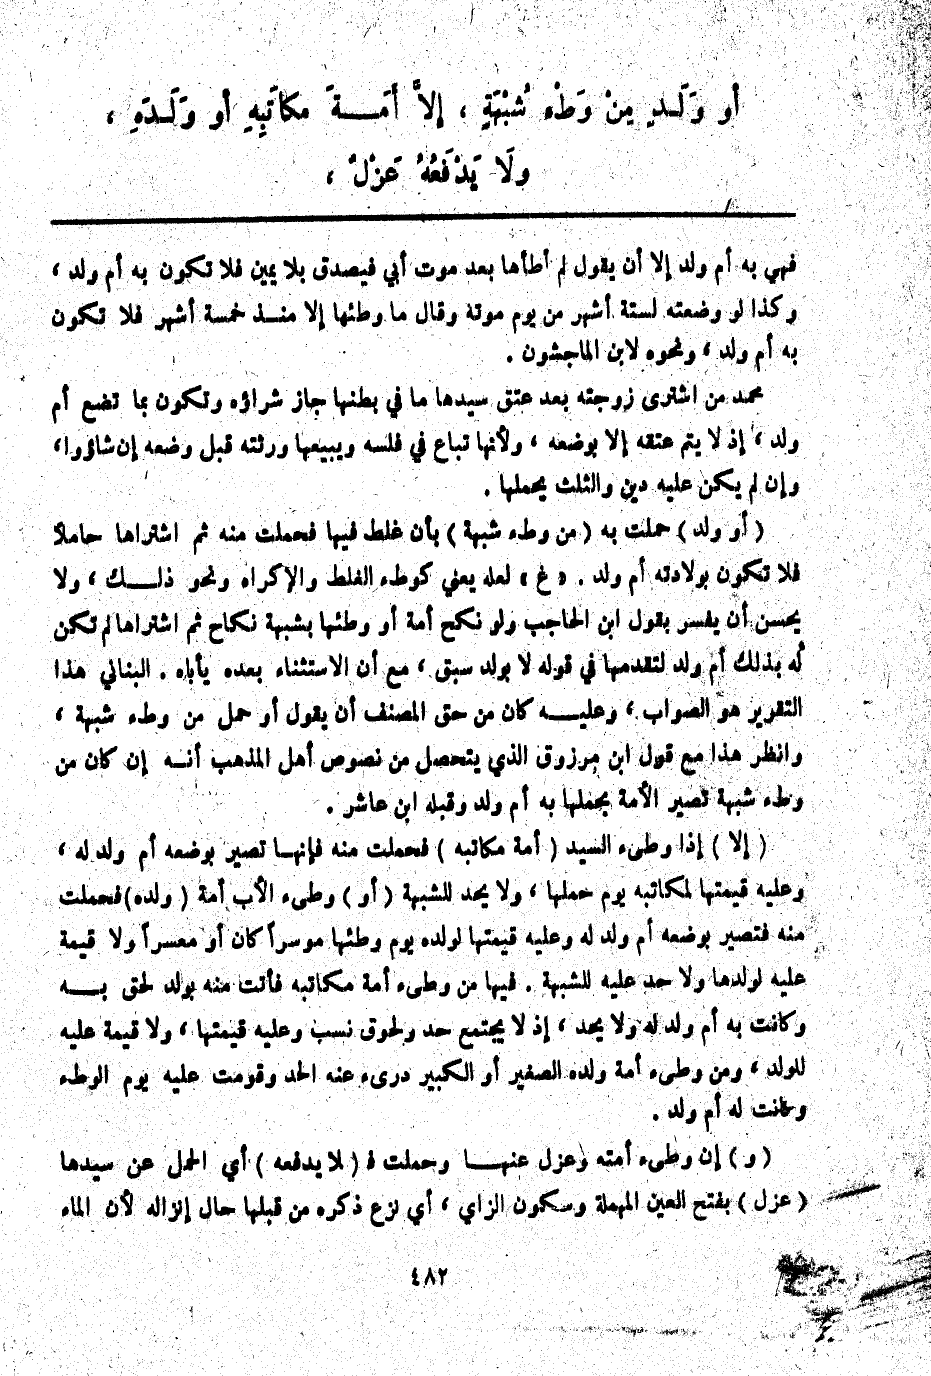 أو وَلَـدٍ مِنْ وَطْءِ شُبْهَةٍ ، إلاَّ أَمَـــةَ مكاتَبِهِ أو وَلَـدَهِ ،
ولَا يَدْفَعُهُ عَزْلٌ ،
فهي به أم ولد إلا أن يقول لم أطأها بعد موت أبي فيصدق بلا يمين فلا تكون به أم ولد ،
وكذا لو وضعته لستة أشهر من يوم موته وقال ما وطئها إلا منـذ خمسة أشهر فلا تكون
به أم ولد ، ونحوه لابن الماجشون .
محمد من اشترى زوجته بعد عتق سيدها ما في بطنها جاز شراؤه وتكون بما تضع أم
ولد ، إذ لا يتم عتقه إلا بوضعه ، ولأنها تباع في فلسه ويبيعها ورثته قبل وضعه إن شاؤوا ،
وإن لم يكن عليه دين والثلث يحملها .
( أو ولد ) حملت به ( من وطء شبهة ) بأن غلط فيها فحملت منه ثم اشتراها حاملاً
فلا تكون بولادته أم ولد . « غ » لعله يعني كوطء الغلط والإكراه ونحو ذلــك ، ولا
يحسن أن يفسر بقول ابن الحاجب ولو نكح أمة أو وطئها بشبهة نكاح ثم اشتراها لم تكن
له بذلك أم ولد لتقدمها في قوله لا بولد سبق ، مع أن الاستثناء بعده يأباه . البناني هذا
التقرير هو الصواب ، وعليـــه كان من حق المصنف أن يقول أو حمل من وطء شبهة ،
وانظر هذا مع قول ابن مرزوق الذي يتحصل من نصوص أهل المذهب أنـه إن كان من
وطء شبهة تصير الأمة بحملها به أم ولد وقبله ابن عاشر .
( إلا ) إذا وطىء السيد ( أمة مكاتبه ) فحملت منه فإنهـا تصير بوضعه أم ولد له ،
وعليه قيمتها لمكاتبه يوم حملها ، ولا يحد للشبهة ( أو ) وطىء الأب أمة ( ولده ) فحملت
منه فتصير بوضعه أم ولد له وعليه قيمتها لولده يوم وطئها موسراً كان أو معسراً ولا قيمة
عليه لولدها ولا حد عليه للشبهة . فيها من وطىء أمة مكاتبه فأتت منه بولد لحق بــه
وكانت به أم ولد له ولا يحد ، إذ لا يجتمع حد ولحوق نسب وعليه قيمتها ، ولا قيمة عليه
للولد ، ومن وطىء أمة ولده الصغير أو الكبير درىء عنه الحد وقومت عليه يوم الوطء
وكانت له أم ولد .
( و ) إن وطىء أمته وعزل عنهــا وحملت فـ ( لا يدفعه ) أي الحمل عن سيدها
( عزل ) بفتح العين المهملة وسكون الزاي ، أي نزع ذكره من قبلها حال إنزاله لأن الماء
٤٨٢